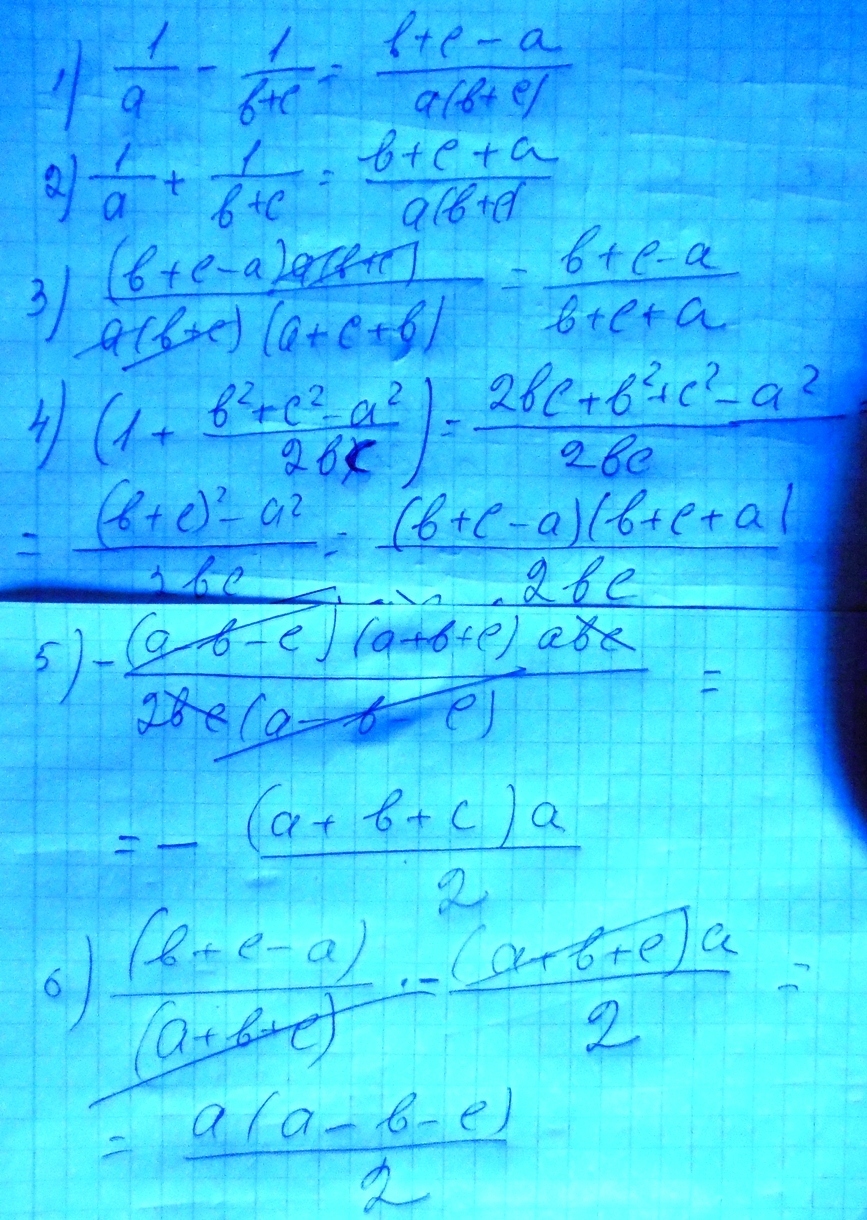 1) 1/a - 1/(b+c) = (b+c-a)/(a(b+c))
2) 1/a + 1/(b+c) = (b+c+a)/(a(b+c)
3) (b+c-a)a(b+c)/(a(b+c)(a+c+b)) = (b+c-a)/(b+c+a)
4) (1 + (b²+c²-a²)/(2bc)) = (2bc+b²+c²-a²)/(2bc) =
= ((b+c)²-a²)/(2bc) = (b+c-a)(b+c+a)/(2bc)
5) - (a-b-c)(a+b+c)abc/(2bc(a-b-c)) =
= - (a+b+c)a/2
6) (b+c-a)/(a+b+c) · - (a+b+c)a/2 =
= a(a-b-c)/2